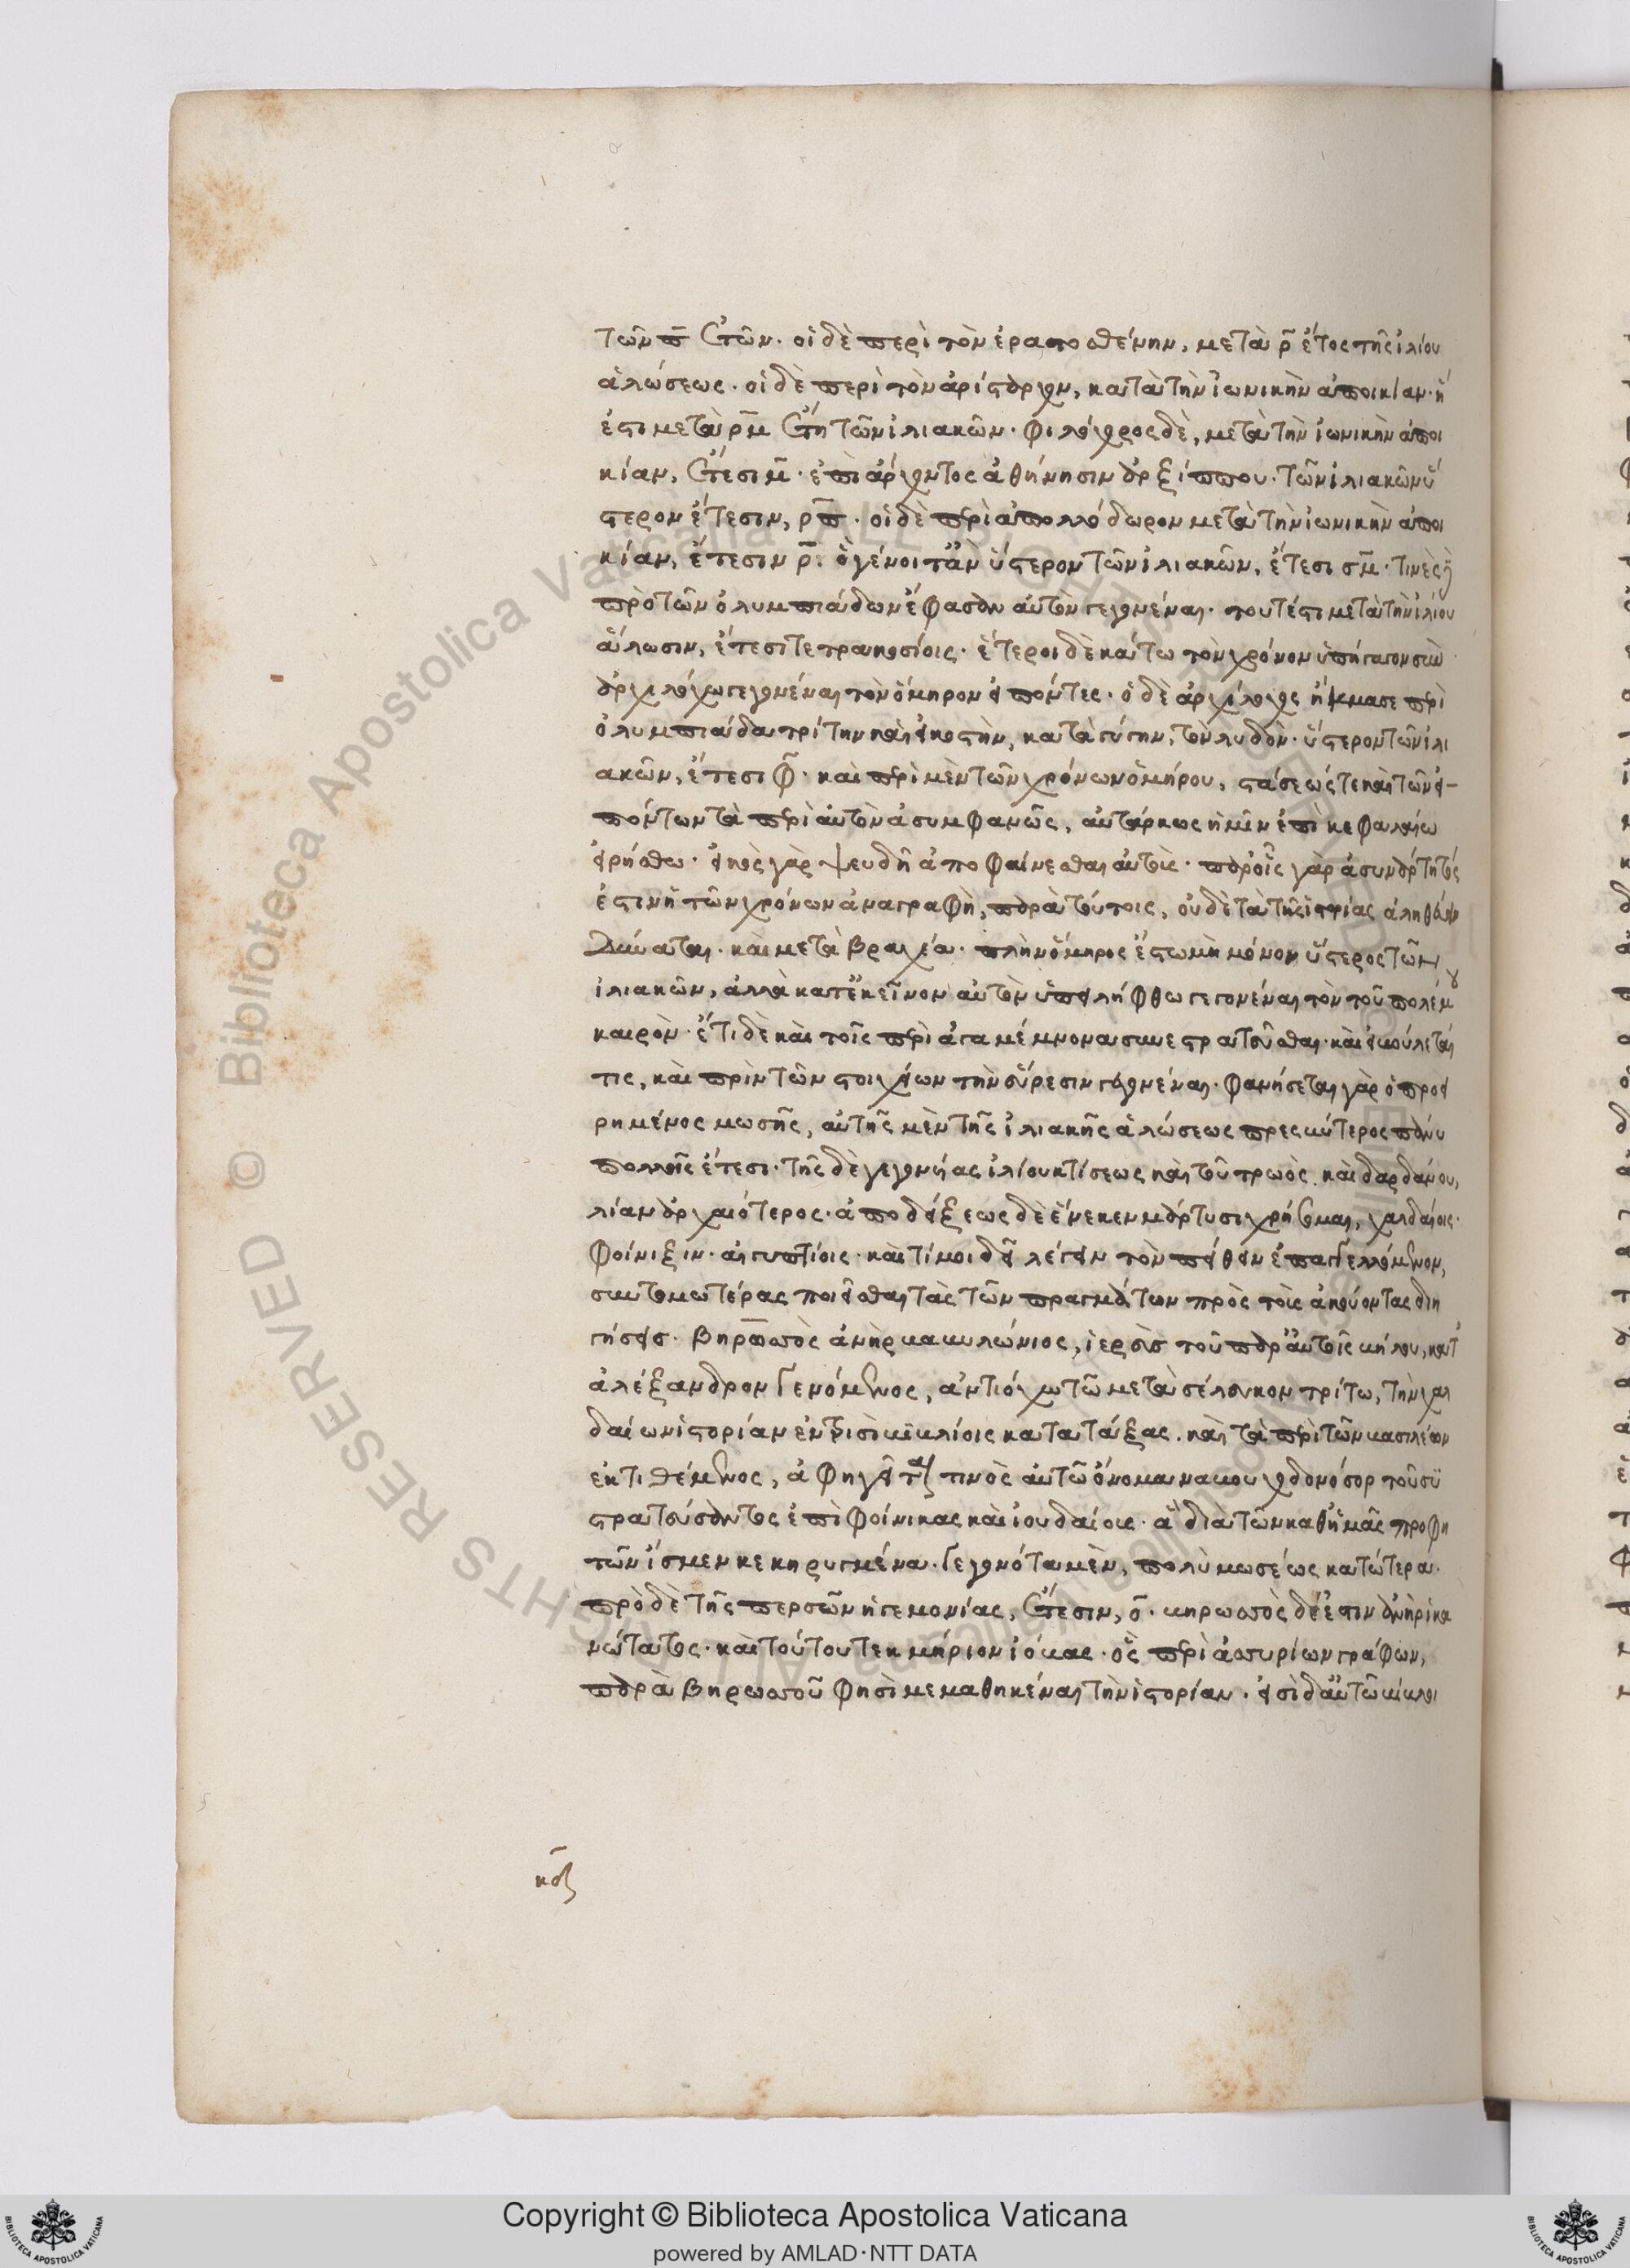 τῶν π̅ ἐτῶν. οἱ δὲ περὶ τὸν ἐρατοσθένην, μετὰ ρ̅ ἔτος τῆς ἰλίου
ἁλώσεως. οἱ δὲ περὶ τὸν ἀρίσταρχον, κατὰ τὴν ἰωνικὴν ἀποικίαν. ἥ
ἐστι μετὰ ρ̅μ̅ ἔτη τῶν ἰλιακῶν. φιλόχορος δὲ, μετὰ τὴν ἰωνικὴν ἀποι
κίαν, ἔτεσι μ̅. ἐπὶ ἄρχοντος ἀθήνησιν ἀρξίππου. τῶν ἰλιακῶν ὕ
στερον ἔτεσιν, ρ̅π̅. οἱ δὲ περὶ ἀπολλόδωρον μετὰ τὴν ἰωνικὴν ἀποι
κίαν, ἔτεσιν ρ̅. ὃ γένοιτ' ἂν ὕστερον τῶν ἰλιακῶν, ἔτεσι σ̅μ̅. τινὲς δὲ
πρὸ τῶν ὀλυμπιάδων ἔφασαν αὐτὸν γεγονέναι. τουτέστι μετὰ τὴν ἰλίου
ἅλωσιν, ἔτεσι τετρακοσίοις. ἕτεροι δὲ κάτω τὸν χρόνον ὑπήγαγον σὺν
ἀρχιλόχω γεγονέναι τὸν ὅμηρον εἰπόντες. ὁ δὲ ἀρχίλοχος ἤκμασε περὶ
ὀλυμπιάδα τρίτην καὶ εἰκοστὴν, κατὰ γύγην, τὸν λυδὸν. ὕστερον τῶν ἰλι
ακῶν, ἔτεσι φ̅. καὶ περὶ μὲν τῶν χρόνων ὁμήρου, στάσεώς τε καὶ τῶν εἰ-
πόντων τὰ περὶ αὐτὸν ἀσυμφανῶς, αὐτάρκως ἡμῖν ἐπὶ κεφαλαίω
εἰρήσθω. εἰκὸς γὰρ ψευδῆ ἀποφαίνεσθαι αὐτοῖς. παρ' οἷς γὰρ ἀσυνάρτητός
ἐστιν ἡ τῶν χρόνων ἀναγραφὴ, παρὰ τούτοις, οὐδὲ τὰ τῆς ἱστορίας ἀληθεύειν
δύναται. καὶ μετὰ βραχέα. πλὴν ὅμηρος ἔστω μὴ μόνον ὕστερος τῶν
ἰλιακῶν, ἀλλὰ κατ' ἐκεῖνον αὐτὸν ὑπειλήφθω γεγονέναι τὸν τοῦ πολέμου
καιρὸν. ἔτι δὲ καὶ τοῖς περὶ ἀγαμέμνονα συνεστρατεῦσθαι. καὶ εἰ βούλεταί
τις, καὶ πρὶν τῶν στοιχείων τὴν εὕρεσιν γεγονέναι. φανήσεται γὰρ ὁ προει
ρημένος μωσῆς, αὐτῆς μὲν τῆς ἰλιακῆς ἁλώσεως πρεσβύτερος πάνυ
πολλοῖς ἔτεσι. τῆς δὲ γεγονυίας ἰλίου κτίσεως καὶ τοῦ τρωὸς. καὶ δαρδάνου,
λίαν ἀρχαιότερος. ἀποδείξεως δὲ ἕνεκεν μάρτυσι χρήσομαι, χαλδαίοις.
φοίνιξιν. αἰγυπτίοις. καὶ τί μοι δεῖ λέγειν τὸν πείθειν ἐπαγγελλόμενον,
συντομωτέρας ποιεῖσθαι τὰς τῶν πραγμάτων πρὸς τοὺς ἀκούοντας διη
γήσεις. βηρωσσὸς ἀνὴρ βαβυλώνιος, ἱερεὺς τοῦ παρ' αὐτοῖς βήλου, κατ'
ἀλέξανδρον γενόμενος, ἀντιόχω τῶ μετὰ σέλευκον τρίτω, τὴν χαλ
δαίων ἱστορίαν ἐν τρισὶ βιβλίοις κατατάξας. καὶ τὰ περὶ τῶν βασιλέων
ἐκτιθέμενος, ἀφηγεῖταί τινος αὐτῶ ὄνομα ναβουχοδονόσορ τοῦ συ
στρατεύσαντος ἐπὶ φοίνικας καὶ ἰουδαίους. ἃ διὰ τῶν καθ' ἡμᾶς προφη
τῶν ἴσμεν κεκηρυγμένα. γεγονότα μὲν, πολὺ μωσέως κατώτερα.
πρὸ δὲ τῆς περσῶν ἡγεμονίας, ἔτεσιν, ο̅. βηρωσσὸς δέ ἐστιν ἀνὴρ ἱκα
νώτατος. καὶ τούτου τεκμήριον ἰόβας. ὃς περὶ ἀσσυρίων γράφων,
παρὰ βηρωσσοῦ φησὶ μεμαθηκέναι τὴν ἱστορίαν. εἰσὶ δ' αὐτῶ βίβλοι
Copyright © Biblioteca Apostolica Vaticana
powered by AMLAD·NTT DATA